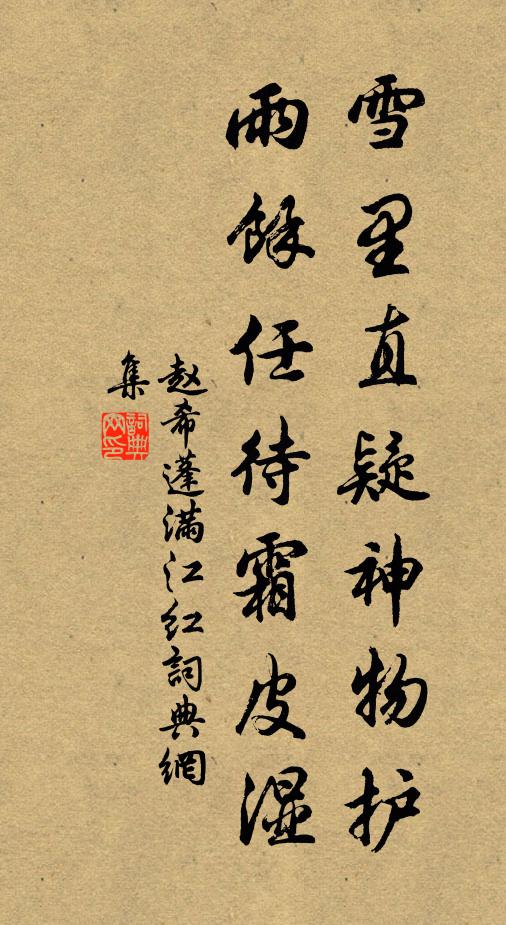 雪里直疑神物护
雨馀任待霜皮湿
赵希蓬满江红詞典網
集
詞典網印